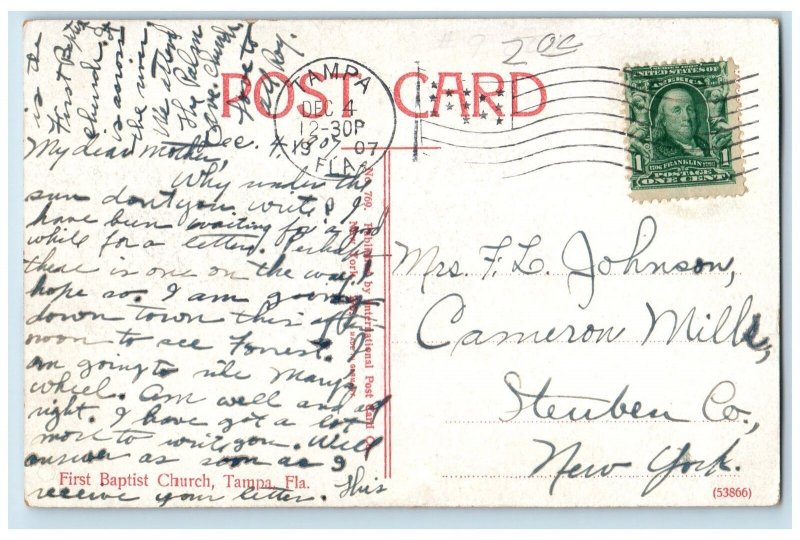 POST CARD
TAMPA
DEC 4
12-30P
1907
FLA.
UNITED STATES OF
AMERICA
1 FRANKLIN 1
POSTAGE
ONE CENT
200
Dec. 4, 1907
My dear mother,
Why under the
sun don't you write? I
have been waiting for a good
while for a letter. Perhaps
there is one on the way. I
hope so. I am going
down town this after-
noon to see Forrest. I
am going to ride Mary's
wheel. Am well and all
right. I have got a lot
more to write you. Will
answer as soon as I
receive your letter. This
is the
First Baptist
Church. It
is across
the river.
We attend
Hy Palm
Ave. Church.
Love to
all
Ray.
No. 769. Published by International Post Card Co.,
New York.
First Baptist Church, Tampa, Fla.
Mrs. F. L. Johnson,
Cameron Mills,
Steuben Co.,
New York.
(53866)